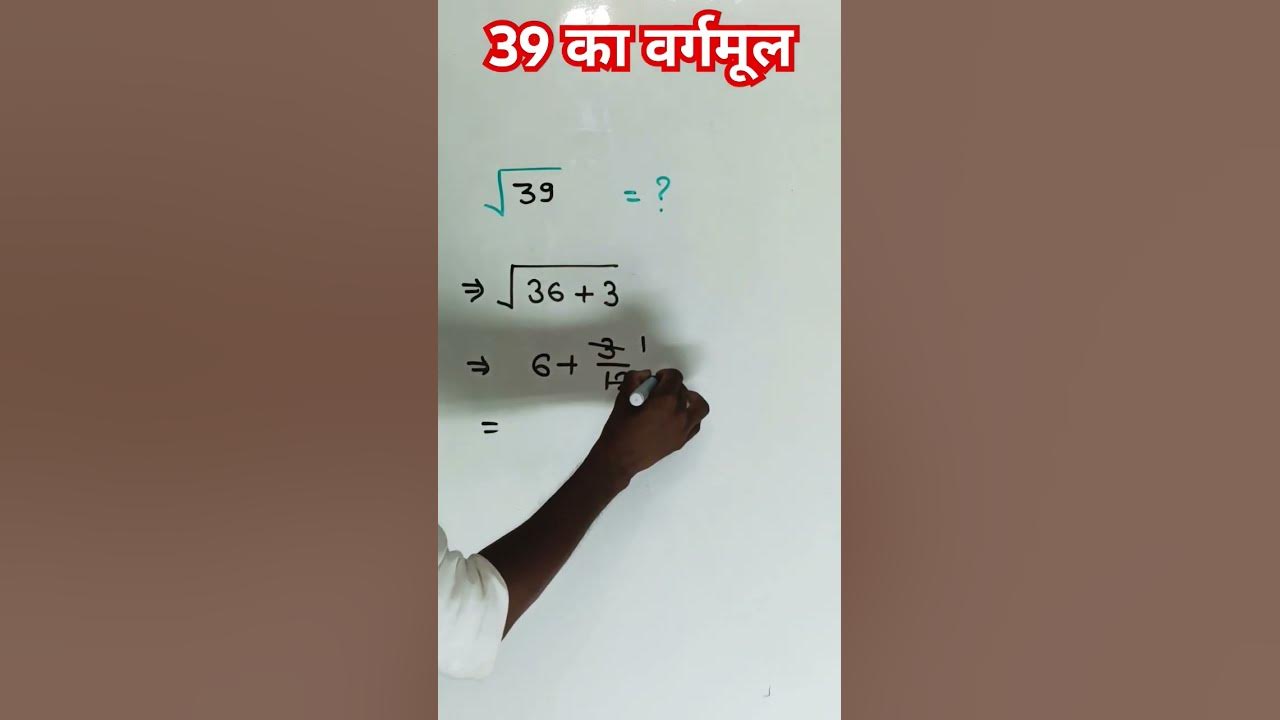 39 का वर्गमूल
√39 = ?
⇒ √36 + 3
⇒ 6 + 3/12 1
=